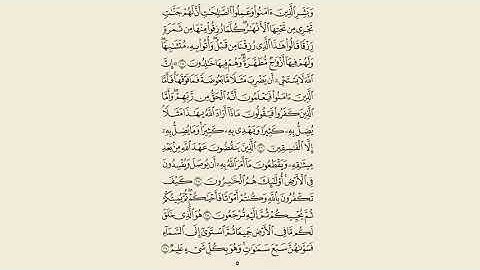 وَبَشِّرِ الَّذِينَ ءَامَنُوا وَعَمِلُوا الصَّٰلِحَٰتِ أَنَّ لَهُمْ جَنَّٰتٍ
تَجْرِى مِن تَحْتِهَا الْأَنْهَٰرُ ۖ كُلَّمَا رُزِقُوا مِنْهَا مِن ثَمَرَةٍ
رِّزْقًا قَالُوا هَٰذَا الَّذِى رُزِقْنَا مِن قَبْلُ ۖ وَأُتُوا بِهِ مُتَشَٰبِهًا ۖ
وَلَهُمْ فِيهَا أَزْوَٰجٌ مُّطَهَّرَةٌ ۖ وَهُمْ فِيهَا خَٰلِدُونَ ۝٢٥ ۞ إِنَّ
اللَّهَ لَا يَسْتَحْىِۦ أَن يَضْرِبَ مَثَلًا مَّا بَعُوضَةً فَمَا فَوْقَهَا ۚ فَأَمَّا
الَّذِينَ ءَامَنُوا فَيَعْلَمُونَ أَنَّهُ الْحَقُّ مِن رَّبِّهِمْ ۖ وَأَمَّا
الَّذِينَ كَفَرُوا فَيَقُولُونَ مَاذَا أَرَادَ اللَّهُ بِهَٰذَا مَثَلًا ۘ
يُضِلُّ بِهِۦ كَثِيرًا وَيَهْدِى بِهِۦ كَثِيرًا ۚ وَمَا يُضِلُّ بِهِۦ
إِلَّا الْفَٰسِقِينَ ۝٢٦ الَّذِينَ يَنقُضُونَ عَهْدَ اللَّهِ مِن بَعْدِ
مِيثَٰقِهِۦ وَيَقْطَعُونَ مَا أَمَرَ اللَّهُ بِهِۦ أَن يُوصَلَ وَيُفْسِدُونَ
فِى الْأَرْضِ ۚ أُولَٰئِكَ هُمُ الْخَٰسِرُونَ ۝٢٧ كَيْفَ
تَكْفُرُونَ بِاللَّهِ وَكُنتُمْ أَمْوَٰتًا فَأَحْيَٰكُمْ ۖ ثُمَّ يُمِيتُكُمْ
ثُمَّ يُحْيِيكُمْ ثُمَّ إِلَيْهِ تُرْجَعُونَ ۝٢٨ هُوَ الَّذِى خَلَقَ
لَكُم مَّا فِى الْأَرْضِ جَمِيعًا ثُمَّ اسْتَوَىٰ إِلَى السَّمَاءِ
فَسَوَّىٰهُنَّ سَبْعَ سَمَٰوَٰتٍ ۚ وَهُوَ بِكُلِّ شَىْءٍ عَلِيمٌ ۝٢٩
٥